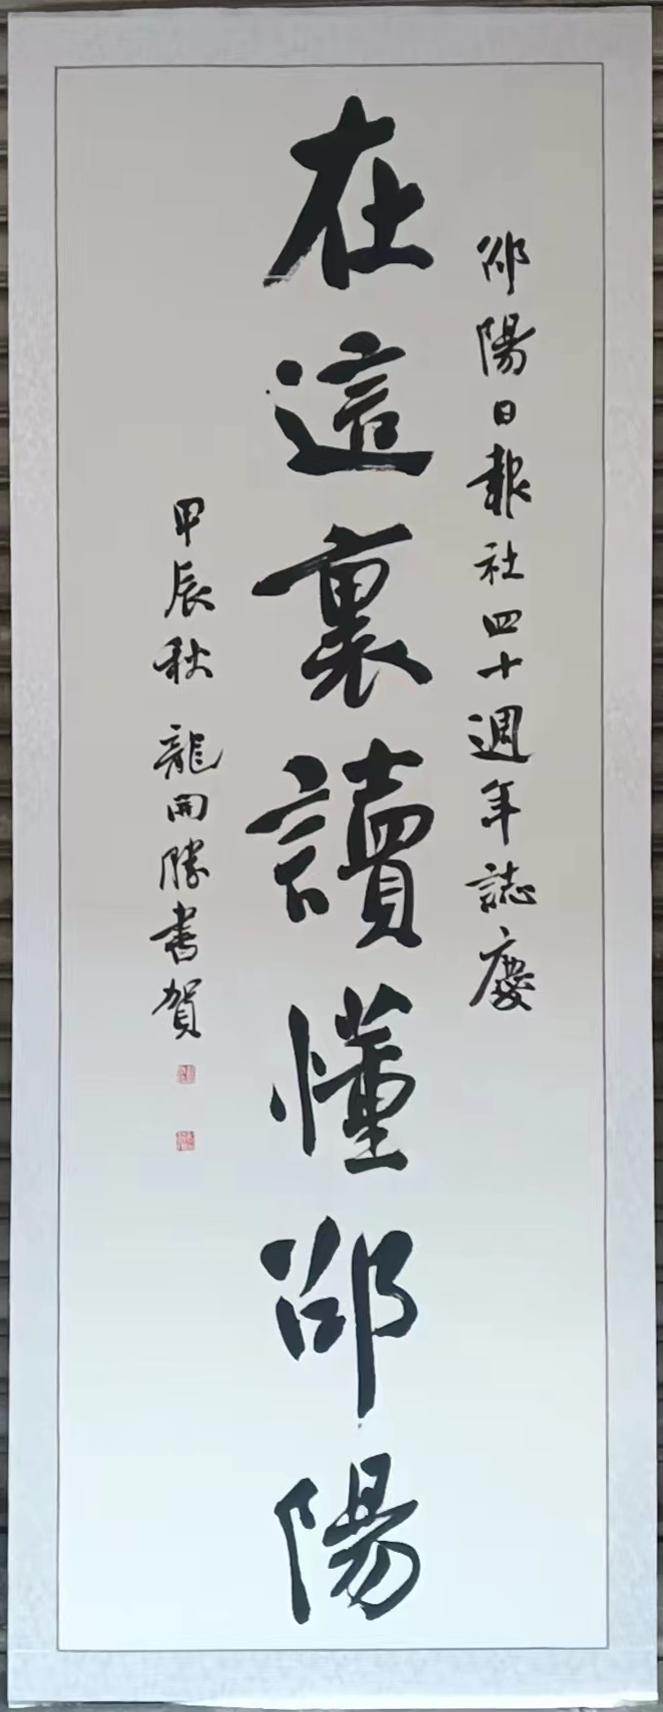 邵陽日報社四十週年誌慶
在這裏讀懂邵陽
甲辰秋 龍開勝書賀